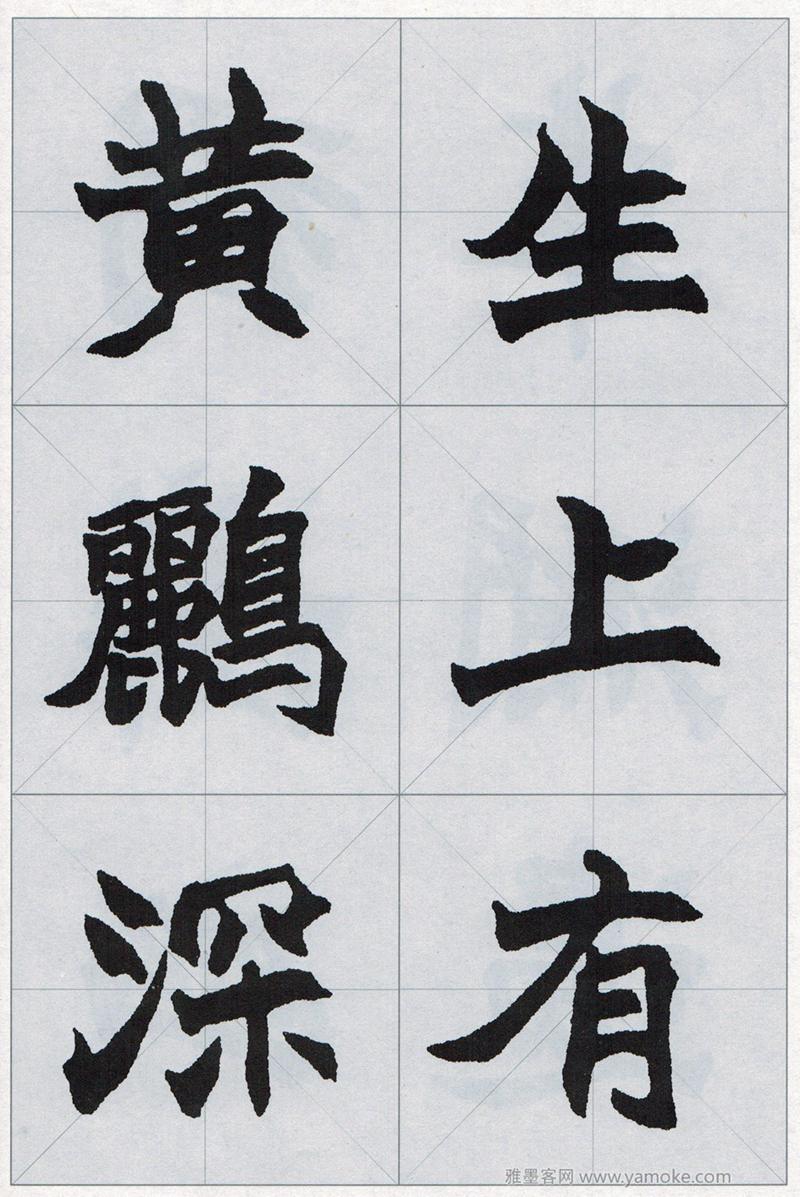 生上有
黄鸝深
雅墨客网 www.yamoke.com